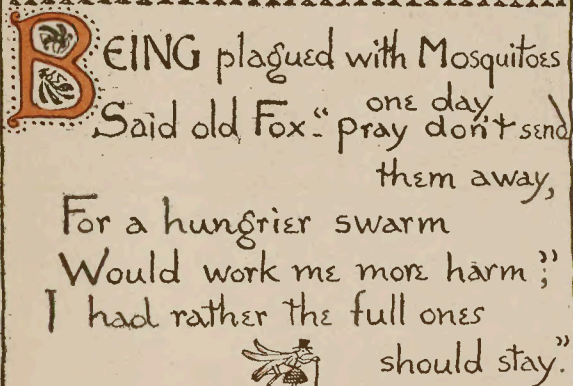 BEING plagued with Mosquitoes
one day
Said old Fox: "pray don't send
them away,
For a hungrier swarm
Would work me more harm;"
I had rather the full ones
should stay."